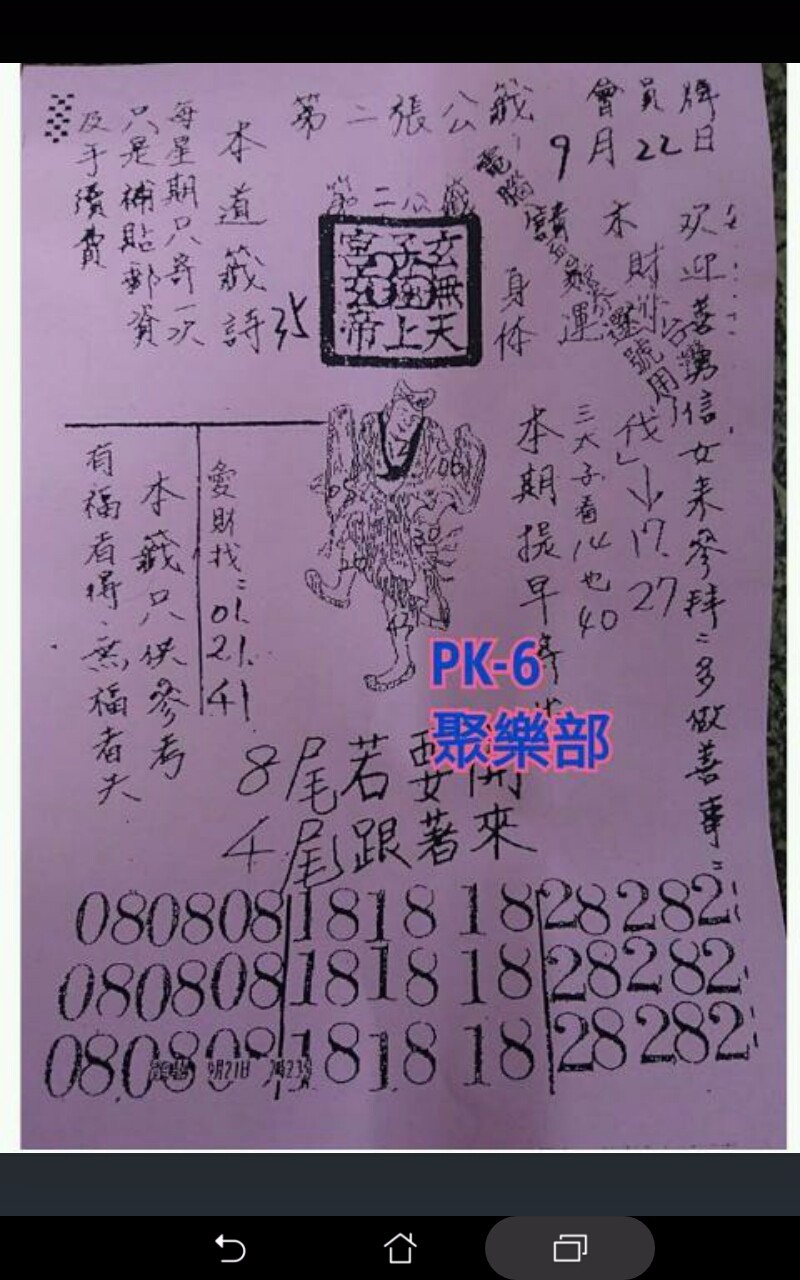 會員牌
9月22日
第二張公籤
第二公籤
玄天
上帝
玄子宮
身体
财
運
欢迎善男信女来參拜：多做善事：
伐↓17.27
三太子看14也40
本期提早
本道籤詩35
每星期只寄一次
只是補貼郵資
及手續費
愛財找：01.21.41
本籤只供參考
有福者得、無福者失
05
06
30
43
PK-6
聚樂部
8尾若要開
4尾跟著來
080808 1818 18 28 28 2
080808 1818 18 28 2 82
080808 1818 18 28 282
9月21日